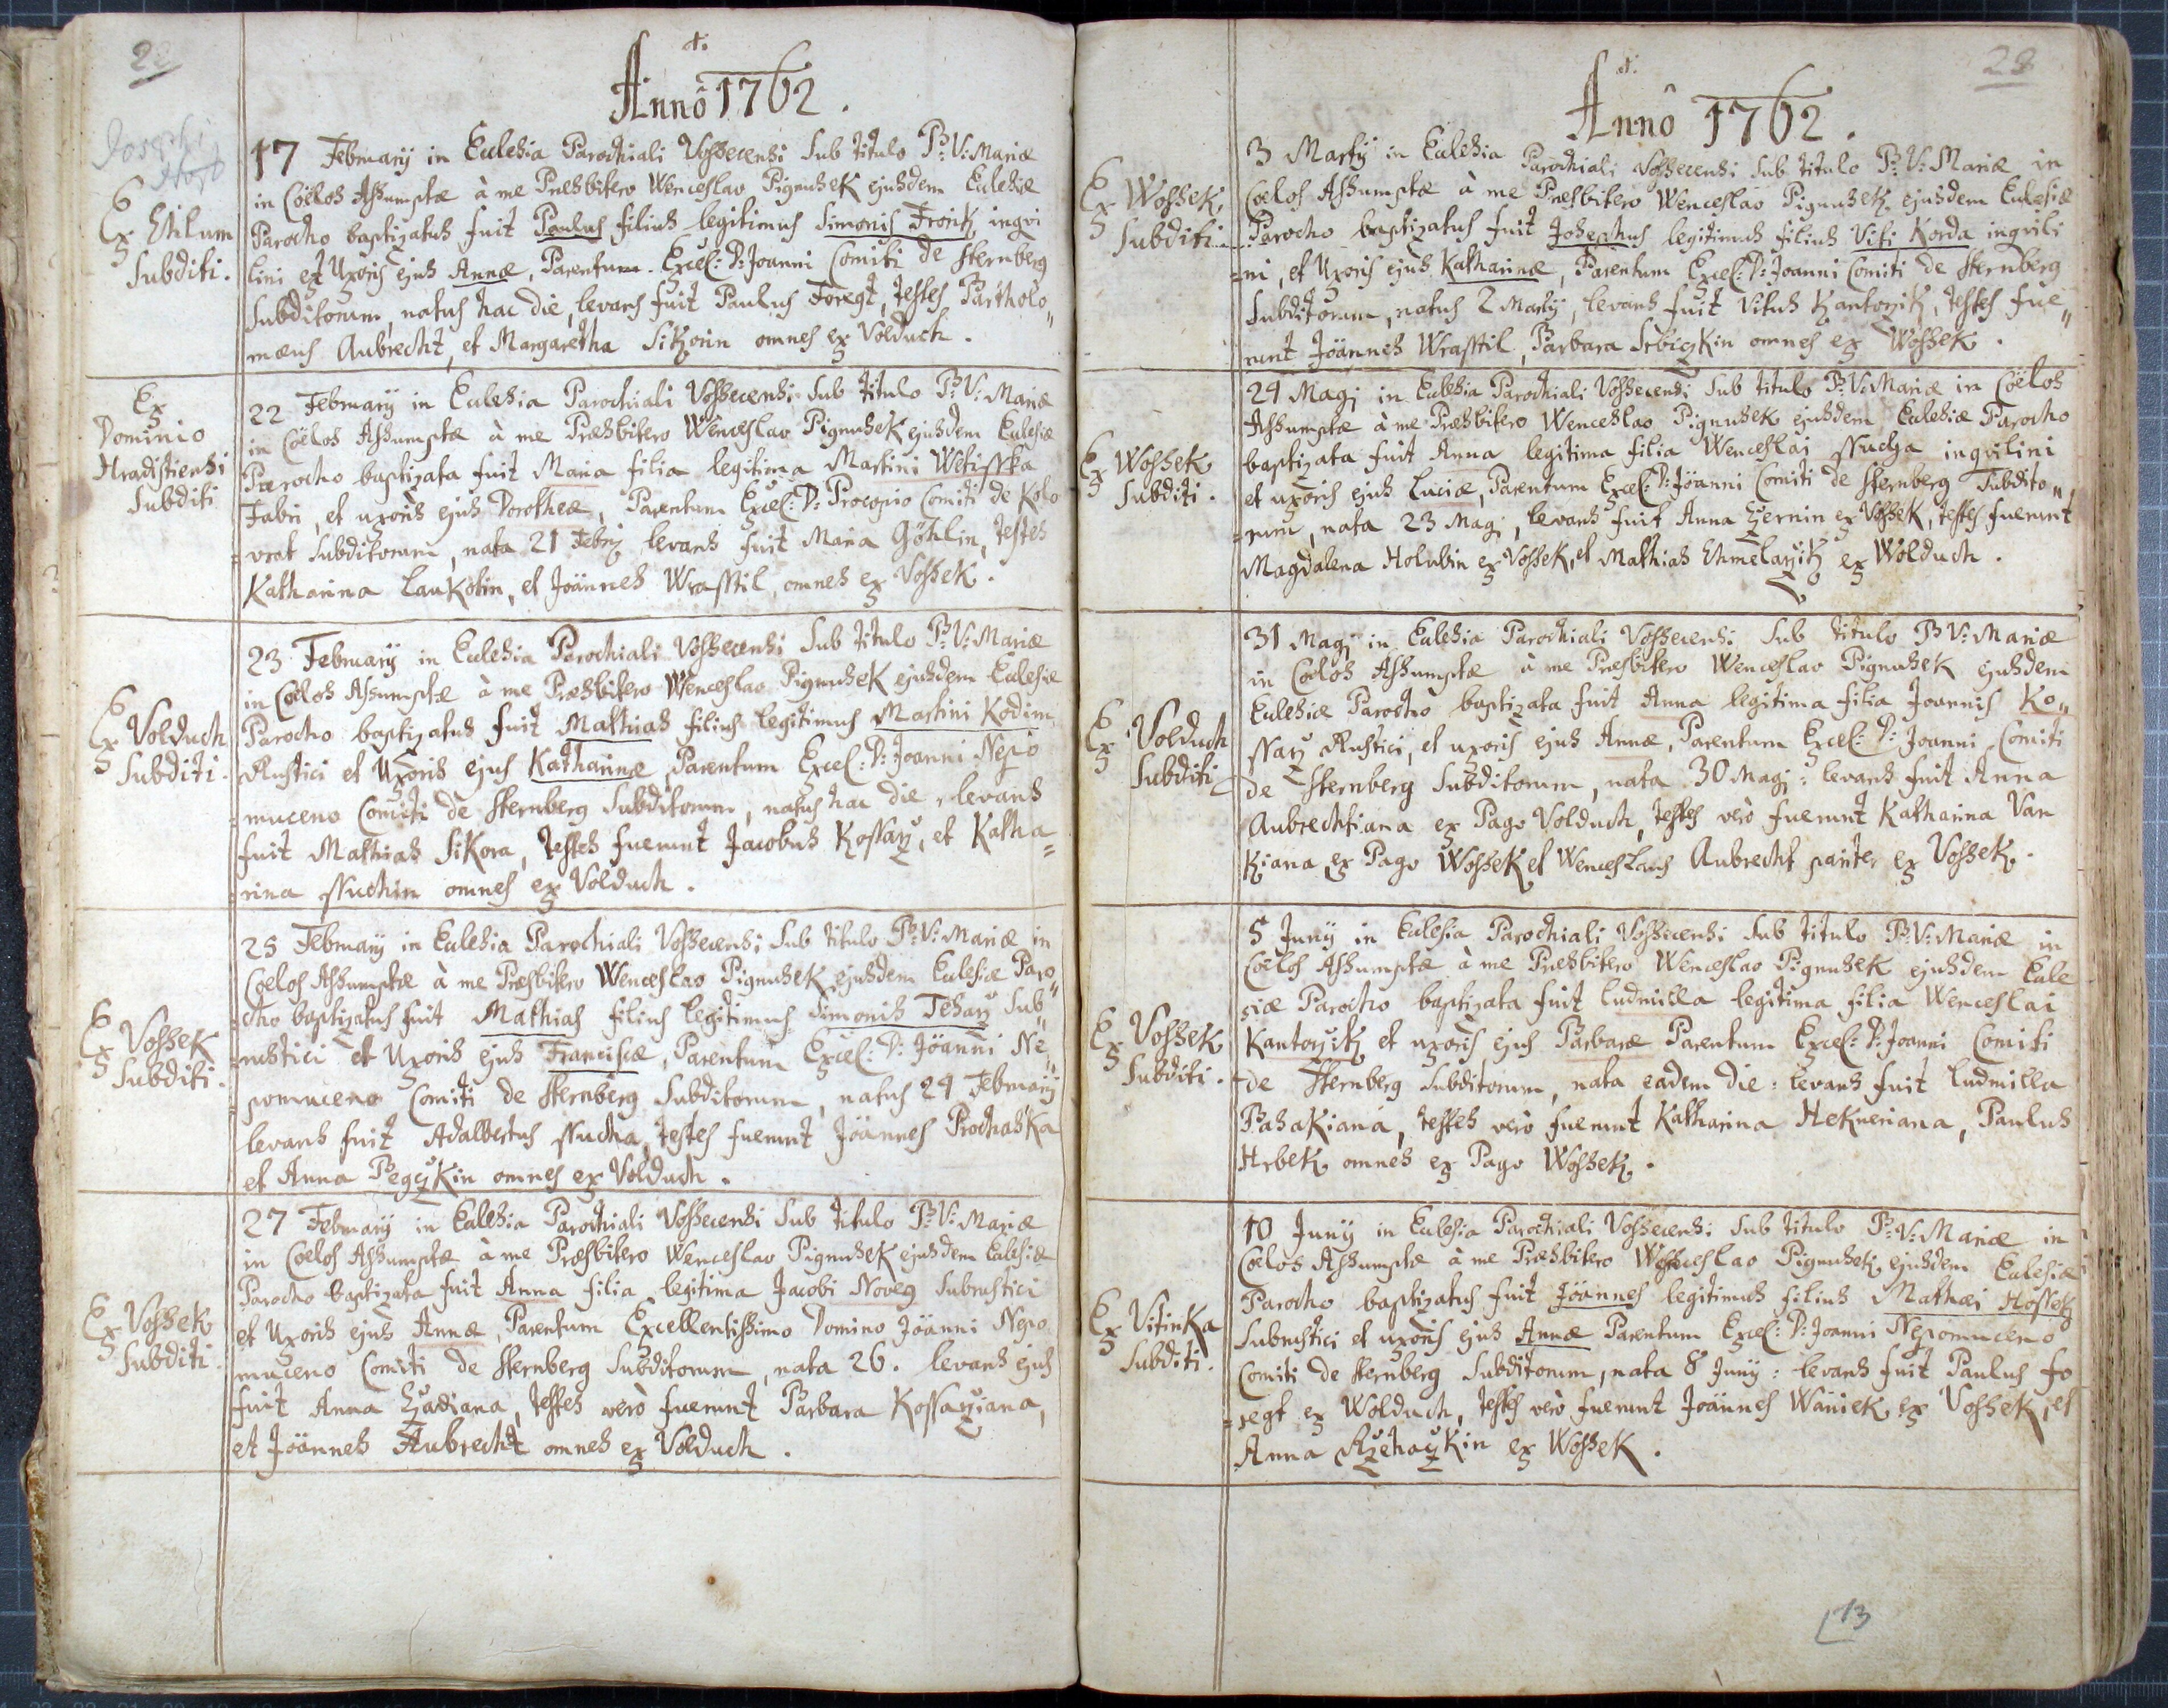 22
Annô 1762.
Josephi
Ex Ehlum
Subditi.
17 Februarÿ in Eclesia Parochiali Vossecensi Sub titulo B: V: Mariæ
in Cöelos Assumptæ à me Presbitero Wenceslao Pignusek ejusdem Eclesiæ
Parocho baptizatus fuit Paulus filius legitimus Simonis Fronk ingvi
lini et Uxoris ejus Annæ, Parentum Excel: D: Joanni Comiti de Sternberg
Subditorum, natus hac die, levans fuit Paulus Foregt, testes Bartholo„
mæus Aubrecht, et Margaretha Sikorin omnes ex Volduch.
Ex
Dominio
Hradistiensi
Subditi
22 Februarÿ in Eclesia Parochiali Vossecensi Sub titulo B: V: Mariæ
in Cöelos Assumptæ à me Præsbitero Wenceslao Pignusek ejusdem Eclesiæ
Parocho baptizata fuit Maria filia legitima Martini Wetisska
Fabri, et uxoris ejus Dorotheæ, Parentum Excel: D: Procopio Comiti de Kolo
wrat Subditorum, nata 21 Febrÿ levans fuit Maria Göhlin, testes
Katharina Laukotin, et Jöannes Wrasstil, omnes ex Vossek.
Ex Volduch
Subditi.
23 Februarÿ in Eclesia Parochiali Vossecensi Sub titulo B: V: Mariæ
in Cöelos Assumptæ à me Præsbitero Wenceslao Pignusek ejusdem Eclesiæ
Parocho baptizatus fuit Mathias filius legitimus Martini Kodim
Rustici et Uxoris ejus Katharinæ Parentum Excel: D: Joanni Nepo
=muceno Comiti de Sternberg Subditorum, natus hac die, levans
fuit Mathias Sikora, testes fuerunt Jacobus Kossarz, et Katha=
=rina Nuchin omnes ex Volduch.
Ex Vossek
Subditi.
25 Februarÿ in Eclesia Parochiali Vossecensi Sub titulo B: V: Mariæ in
Coelos Assumptæ à me Præsbitero Wenceslao Pignusek ejusdem Eclesiæ Paro„
cho baptizatus fuit Mathias filius legitimus Simonis Tesarz Sub„
=rustici et Uxoris ejus Franciscæ, Parentum Excel: D: Jöanni Ne„
pomuceno Comiti de Sternberg Subditorum, natus 24 Februarÿ
levans fuit Adalbertus Nucha, testes fuerunt Jöannes Prochaska
et Anna Pegzkin omnes ex Volduch.
Ex Vossek
Subditi.
27 Februarÿ in Eclesia Parochiali Vossecensi Sub titulo B: V: Mariæ
in Coelos Assumptæ à me Presbitero Wenceslao Pignusek ejusdem Eclesiæ
Parocho baptizata fuit Anna filia legitima Jacobi Noveg Subrustici
et Uxoris ejus Annæ, Parentum Excellentissimo Domino Jöanni Nepo
muceno Comiti de Sternberg Subditorum, nata 26. levans ejus
fuit Anna Hadiana, testes verò fuerunt Barbara Kossarziana,
et Jöannes Aubrecht omnes ex Volduch.
Annô 1762.
Ex Wossek
Subditi.
3 Martÿ in Eclesia Parochiali Vossecensi Sub titulo B: V: Mariæ in
Coelos Assumptæ à me Presbitero Wenceslao Pignusek ejusdem Eclesiæ
Parocho baptizatus fuit Josephus legitimus filius Viti Korda ingvili
=ni, et Uxoris ejus Katharinæ, Parentum Excel: D: Joanni Comiti de Sternberg
Subditorum, natus 2 Martÿ, levans fuit Vitus Kantorzik, testes fue„
runt Jöannes Wrasstil, Barbara Srbiczkin omnes ex Wossek.
Ex Wossek
Subditi.
24 Magj in Eclesia Parochiali Vossecensi Sub titulo B: V: Mariæ in Cöelos
Assumptæ à me Præsbitero Wenceslao Pignusek ejusdem Eclesiæ Parocho
baptizata fuit Anna legitima filia Wenceslai Nucha ingvilini
et uxoris ejus Luciæ, Parentum Excel: D: Jöanni Comiti de Sternberg Subdito„
=rum, nata 23 Magj, levans fuit Anna Czernin ex Vossek, testes fuerunt
Magdalena Holubin ex Vossek, et Mathias Chmelarzik ex Wolduch.
Ex Volduch
Subditi
31 Magj in Eclesia Parochiali Vossecensi Sub titulo B V: Mariæ
in Coelos Assumptæ à me Presbitero Wenceslao Pignusek ejusdem
Eclesiæ Parocho baptizata fuit Anna legitima filia Joannis Ko„
ssarz Rustici, et uxoris ejus Annæ, Parentum Excel: D: Joanni Comiti
de Sternberg Subditorum, nata 30 Magj: levans fuit Anna
Aubrechtiana ex Pago Volduch, testes verò fuerunt Katharina Van
kiana ex Pago Wossek et Wenceslaus Aubrecht pariter ex Vossek.
Ex Vossek
Subditi.
5 Junÿ in Eclesia Parochiali Vossecensi Sub titulo B: V: Mariæ in
Cöelos Assumptæ à me Præsbitero Wenceslao Pignusek ejusdem Ecle
siæ Parocho baptizata fuit Ludmilla legitima filia Wenceslai
Kantorzik et uxoris ejus Barbaræ Parentum Excel: D: Joanni Comiti
de Sternberg Subditorum, nata eadem die: levans fuit Ludmilla
Pasakiana, testes verò fuerunt Katharina Hekneriana, Paulus
Hrbek omnes ex Pago Wossek.
Ex Vitinka
Subditi.
10 Junÿ in Eclesia Parochiali Vossecensi Sub titulo B: V: Mariæ in
Coelos Assumptæ à me Præsbitero Wenceslao Pignusek ejusdem Eclesiæ
Parocho baptizatus fuit Jöannes legitimus filius Mathæi Hossek
Subrustici et uxoris ejus Annæ Parentum Excel: D: Joanni Nepomuceno
Comiti de Sternberg Subditorum, nata 8 Junÿ: levans fuit Paulus Fo
=regt ex Wolduch, testes verò fuerunt Jöannes Waniek ex Vossek, et
Anna Rzehaczkin ex Wossek.
13